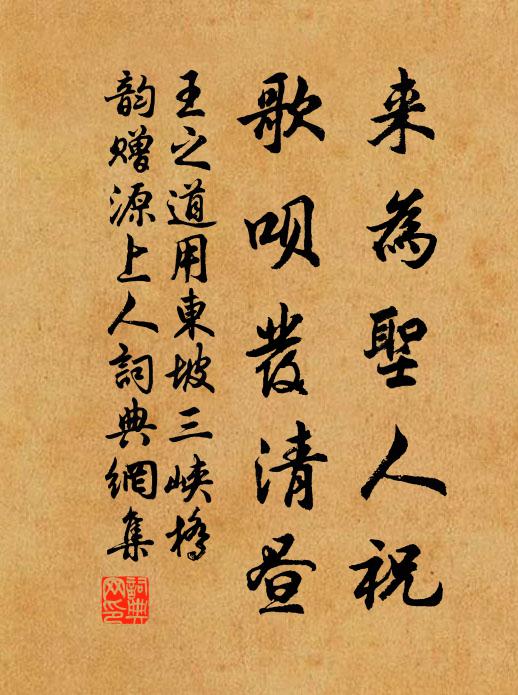 来為聖人祝
歌呗發清昼
王之道用東坡三峡橋
韵赠源上人詞典網集
詞典
网印